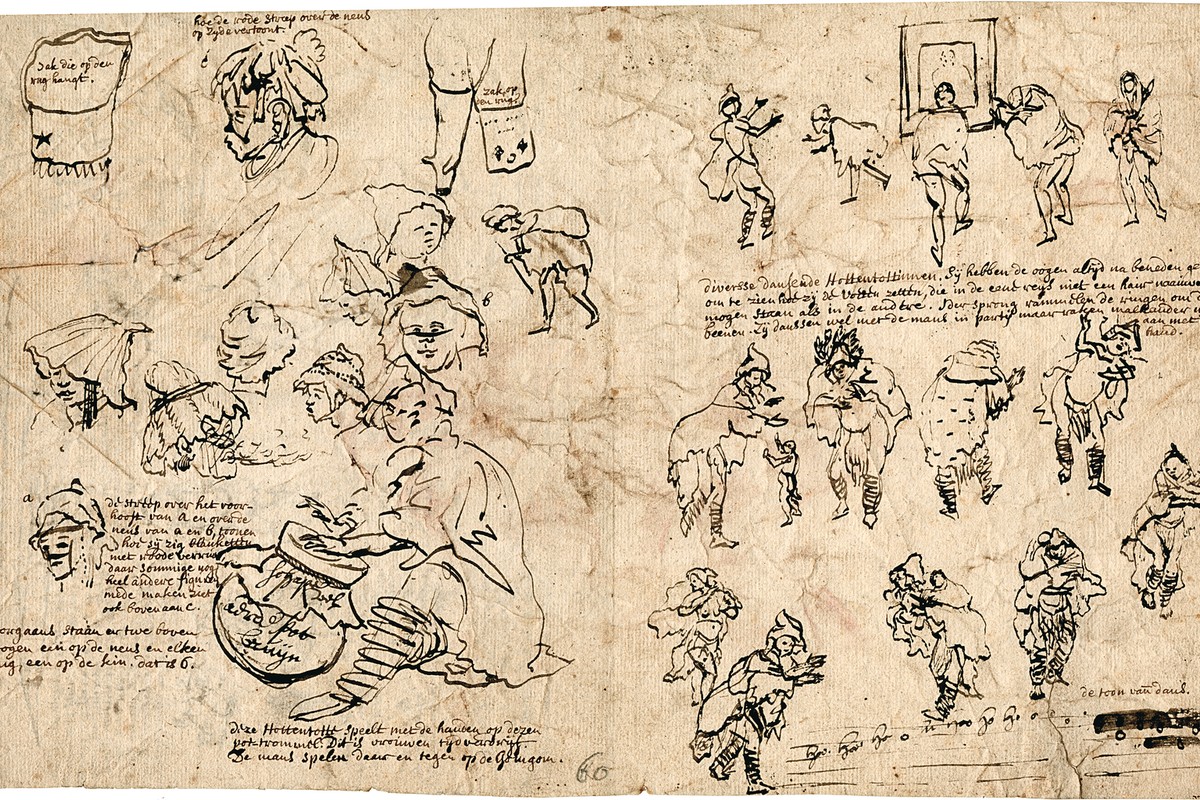 hoe de rode streep over de neus
op zyde vertoont.
Zak die op den
rug hangt.
zak, op
den rug
diversse dansende Hottentottinnen. Sy hebben de oogen altyd na beneden
om te zien hoe zy de voeten zetten, die in de eene reys niet een haar
mogen staan als in de andere. Ider sprong rammelen de ringen om
beenen. Zy danssen wel met de mans in party maar raken malkander
aan met
hand.
b
a
de streep over het voor-
hooft van a en over de
neus van a en b, toonen
hoe sy zig blanketten
met roode verruw
daar sommige nog
heel andere figuren
mede maken ziet
ook boven aan c.
staan er twe boven
oogen een op de neus en elken
een op de kin. dat is 6.
aerde pot
bruyn
deze Hottentotte speelt met de handen op dezen
pot trommel. Dit is vrouwen tydverdryf
De mans spelen daar en tegen op de Gomgom.
60
de toon van dans.
ho ho ho o